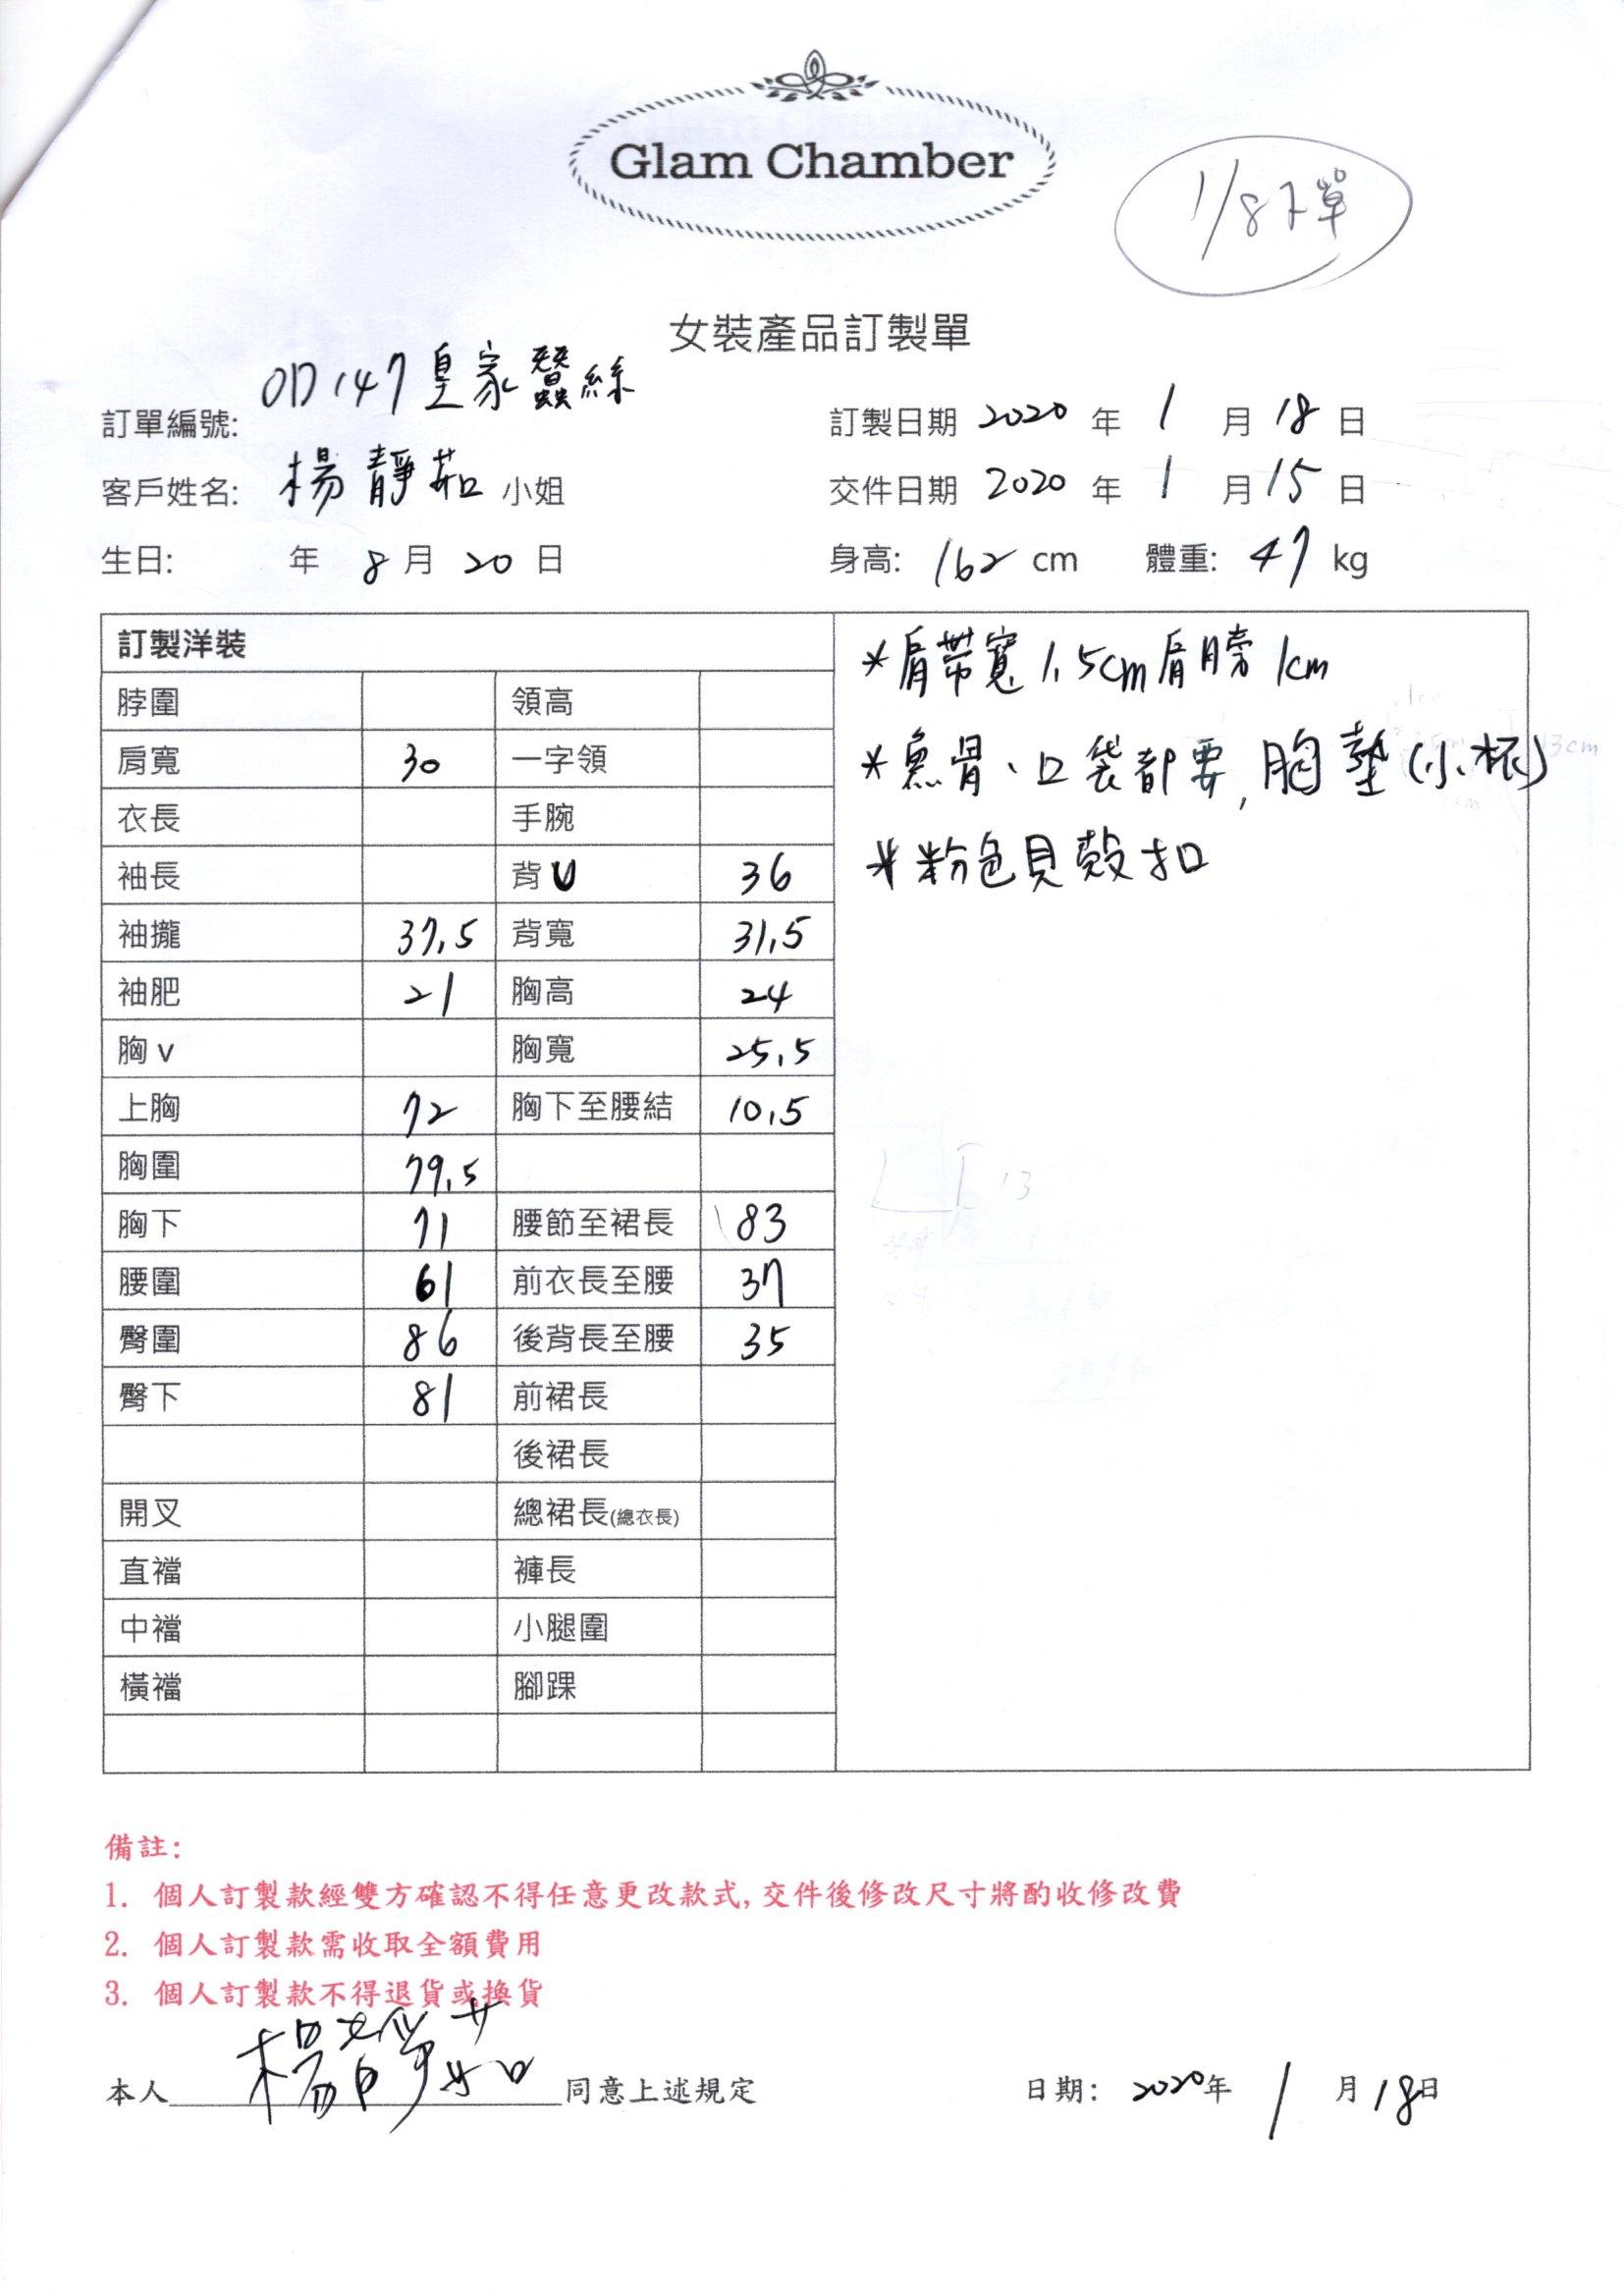 Glam Chamber
1/8下單
女裝產品訂製單
訂單編號: OD147皇家蠶絲
訂製日期 2020 年 1 月 18 日
客戶姓名: 楊靜茹 小姐
交件日期 2020 年 1 月 15 日
生日: 年 8 月 20 日
身高: 162 cm 體重: 47 kg
訂製洋裝
脖圍 領高
肩寬 30 一字領
衣長 手腕
袖長 背V 36
袖攏 37.5 背寬 31.5
袖肥 21 胸高 24
胸v 胸寬 25.5
上胸 72 胸下至腰結 10.5
胸圍 79.5
胸下 71 腰節至裙長 83
腰圍 61 前衣長至腰 37
臀圍 86 後背長至腰 35
臀下 81 前裙長
後裙長
開叉 總裙長(總衣長)
直襠 褲長
中襠 小腿圍
橫襠 腳踝
*肩帶寬1.5cm肩膀1cm
*魚骨、口袋都要,胸墊(小杯)
*粉色貝殼扣
備註:
1. 個人訂製款經雙方確認不得任意更改款式,交件後修改尺寸將酌收修改費
2. 個人訂製款需收取全額費用
3. 個人訂製款不得退貨或換貨
本人 楊靜茹 同意上述規定
日期: 2020年 1 月 18日